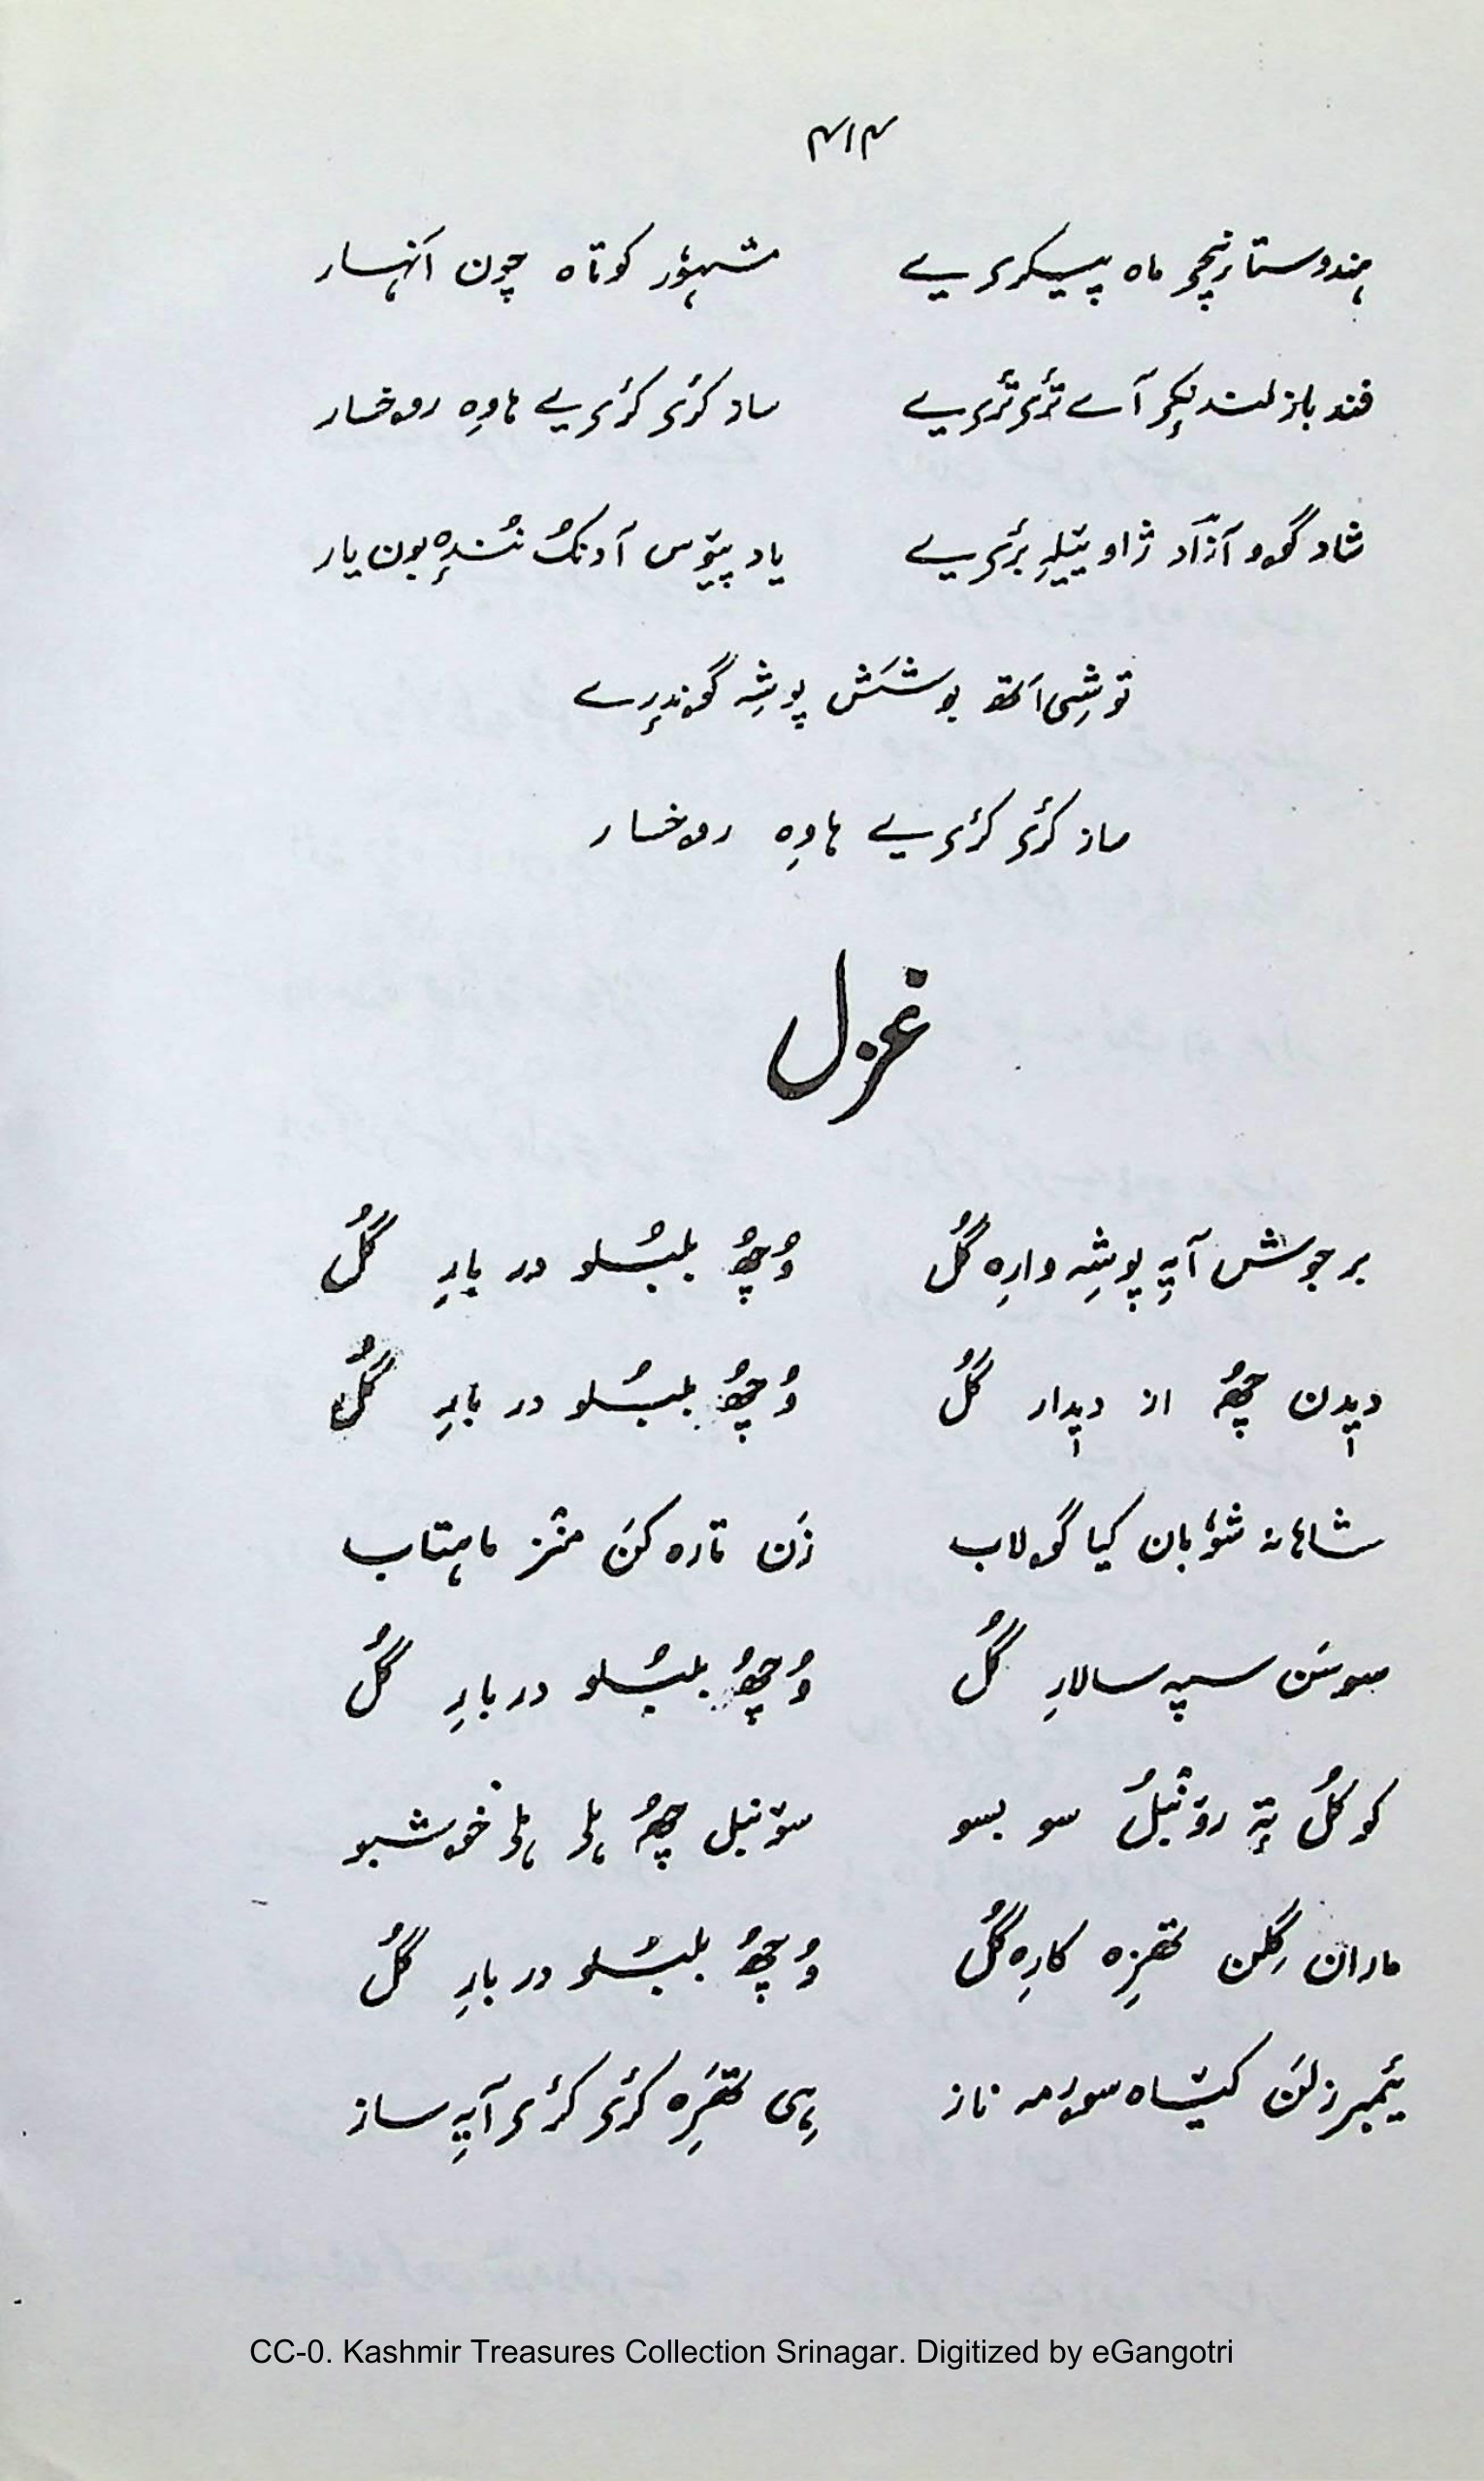 ۴۱۴
ہندوستانچی ماہ پیکر یے مشہوٗر کوتاہ چون انہار
قند باز لندنکۍ آے تٔرۍ تٔرۍ یے ساز کٔرۍ کٔرۍ یے ہاوِہ روخسار
شاد گوو آزاد ژاو ییلہِ برٔۍ یے یاد پیوٚس آدنکُ نُندٕہ بون یار
توشِی اَتھ پوشَش پوشِہ گوندرے
ساز کٔرۍ کٔرۍ یے ہاوِہ روخسار
غزل
بر جوش آیہِ پوشِہ وارِہ گُل وُچھُ بلبُلو در بارِ گُل
دیدن چھُ از دیدار گُل وُچھُ بلبُلو در بارِ گُل
شاہانہ شوٗبان کیا گولاب زَن تارہ کَن منٛز ماہتاب
سوسَن سپہ سالارِ گُل وُچھُ بلبُلو دربارِ گُل
کوکلُ تہٕ روٚنٛیلُ سو بسو سوٚنبل چھُ ہلۍ ہلۍ خوشبو
ماران گِلن تھزِہ کارِہ گُل وُچھُ بلبُلو در بارِ گُل
یٔمبرزلَن کیتاہ سورمہ ناز یِی تھَزِہ کٔرۍ کٔرۍ آیہِ ساز
CC-0. Kashmir Treasures Collection Srinagar. Digitized by eGangotri